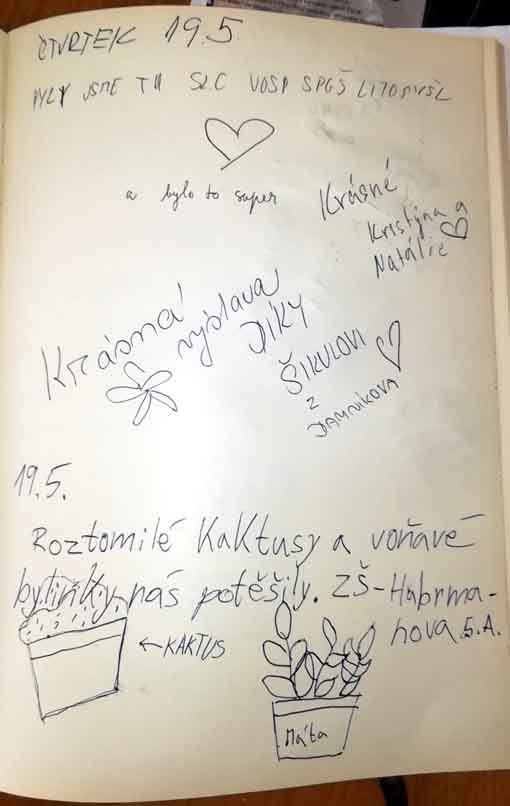 ČTVRTEK 19.5.
BYLY JSME TU SZC VOSP SPGŠ LITOMYŠL
a bylo to super
Krásné
Kristýna a
Natálie
Krásná
výstava
DÍKY
ŠIKULOVI
Z
DAMNÍKOVA
19.5.
Roztomilé Kaktusy a voňavé
bylinky nás potěšily. ZŠ-Habrma-
nova 5.A.
←KAKTUS
Máta